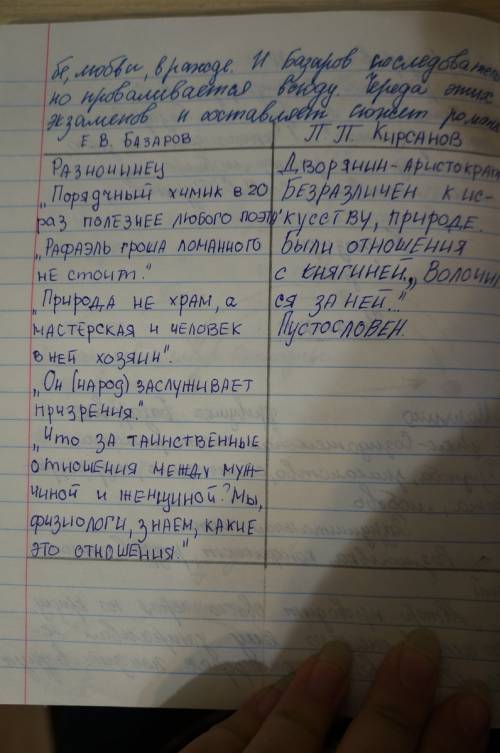 бе, любви, вражде. И Базаров последовате
но проваливается всюду. Череда этих
экзаменов и составляет сюжет романа
Е. В. БАЗАРОВ
П П. КИРСАНОВ
РАЗНОЧИНЕЦ
„ПОРЯДЧНЫЙ ХИМИК В 20
РАЗ ПОЛЕЗНЕЕ ЛЮБОГО ПОЭТА"
„РАФАЭЛЬ ГРОША ЛОМАННОГО
НЕ СТОИТ."
„ПРИРОДА НЕ ХРАМ, А
МАСТЕРСКАЯ И ЧЕЛОВЕК
В НЕЙ ХОЗЯИН".
„ОН (НАРОД) ЗАСЛУЖИВАЕТ
ПРИЗРЕНИЯ."
„ЧТО ЗА ТАИНСТВЕННЫЕ
ОТНОШЕНИЯ МЕЖДУ МУЖ-
ЧИНОЙ И ЖЕНЩИНОЙ? МЫ,
ФИЗИОЛОГИ, ЗНАЕМ, КАКИЕ
ЭТО ОТНОШЕНИЯ."
ДВОРЯНИН-АРИСТОКРАТ
БЕЗРАЗЛИЧЕН К ИС-
КУССТВУ, ПРИРОДЕ.
БЫЛИ ОТНОШЕНИЯ
С КНЯГИНЕЙ. „ВОЛОЧИЛ
СЯ ЗА НЕЙ..."
ПУСТОСЛОВЕН.